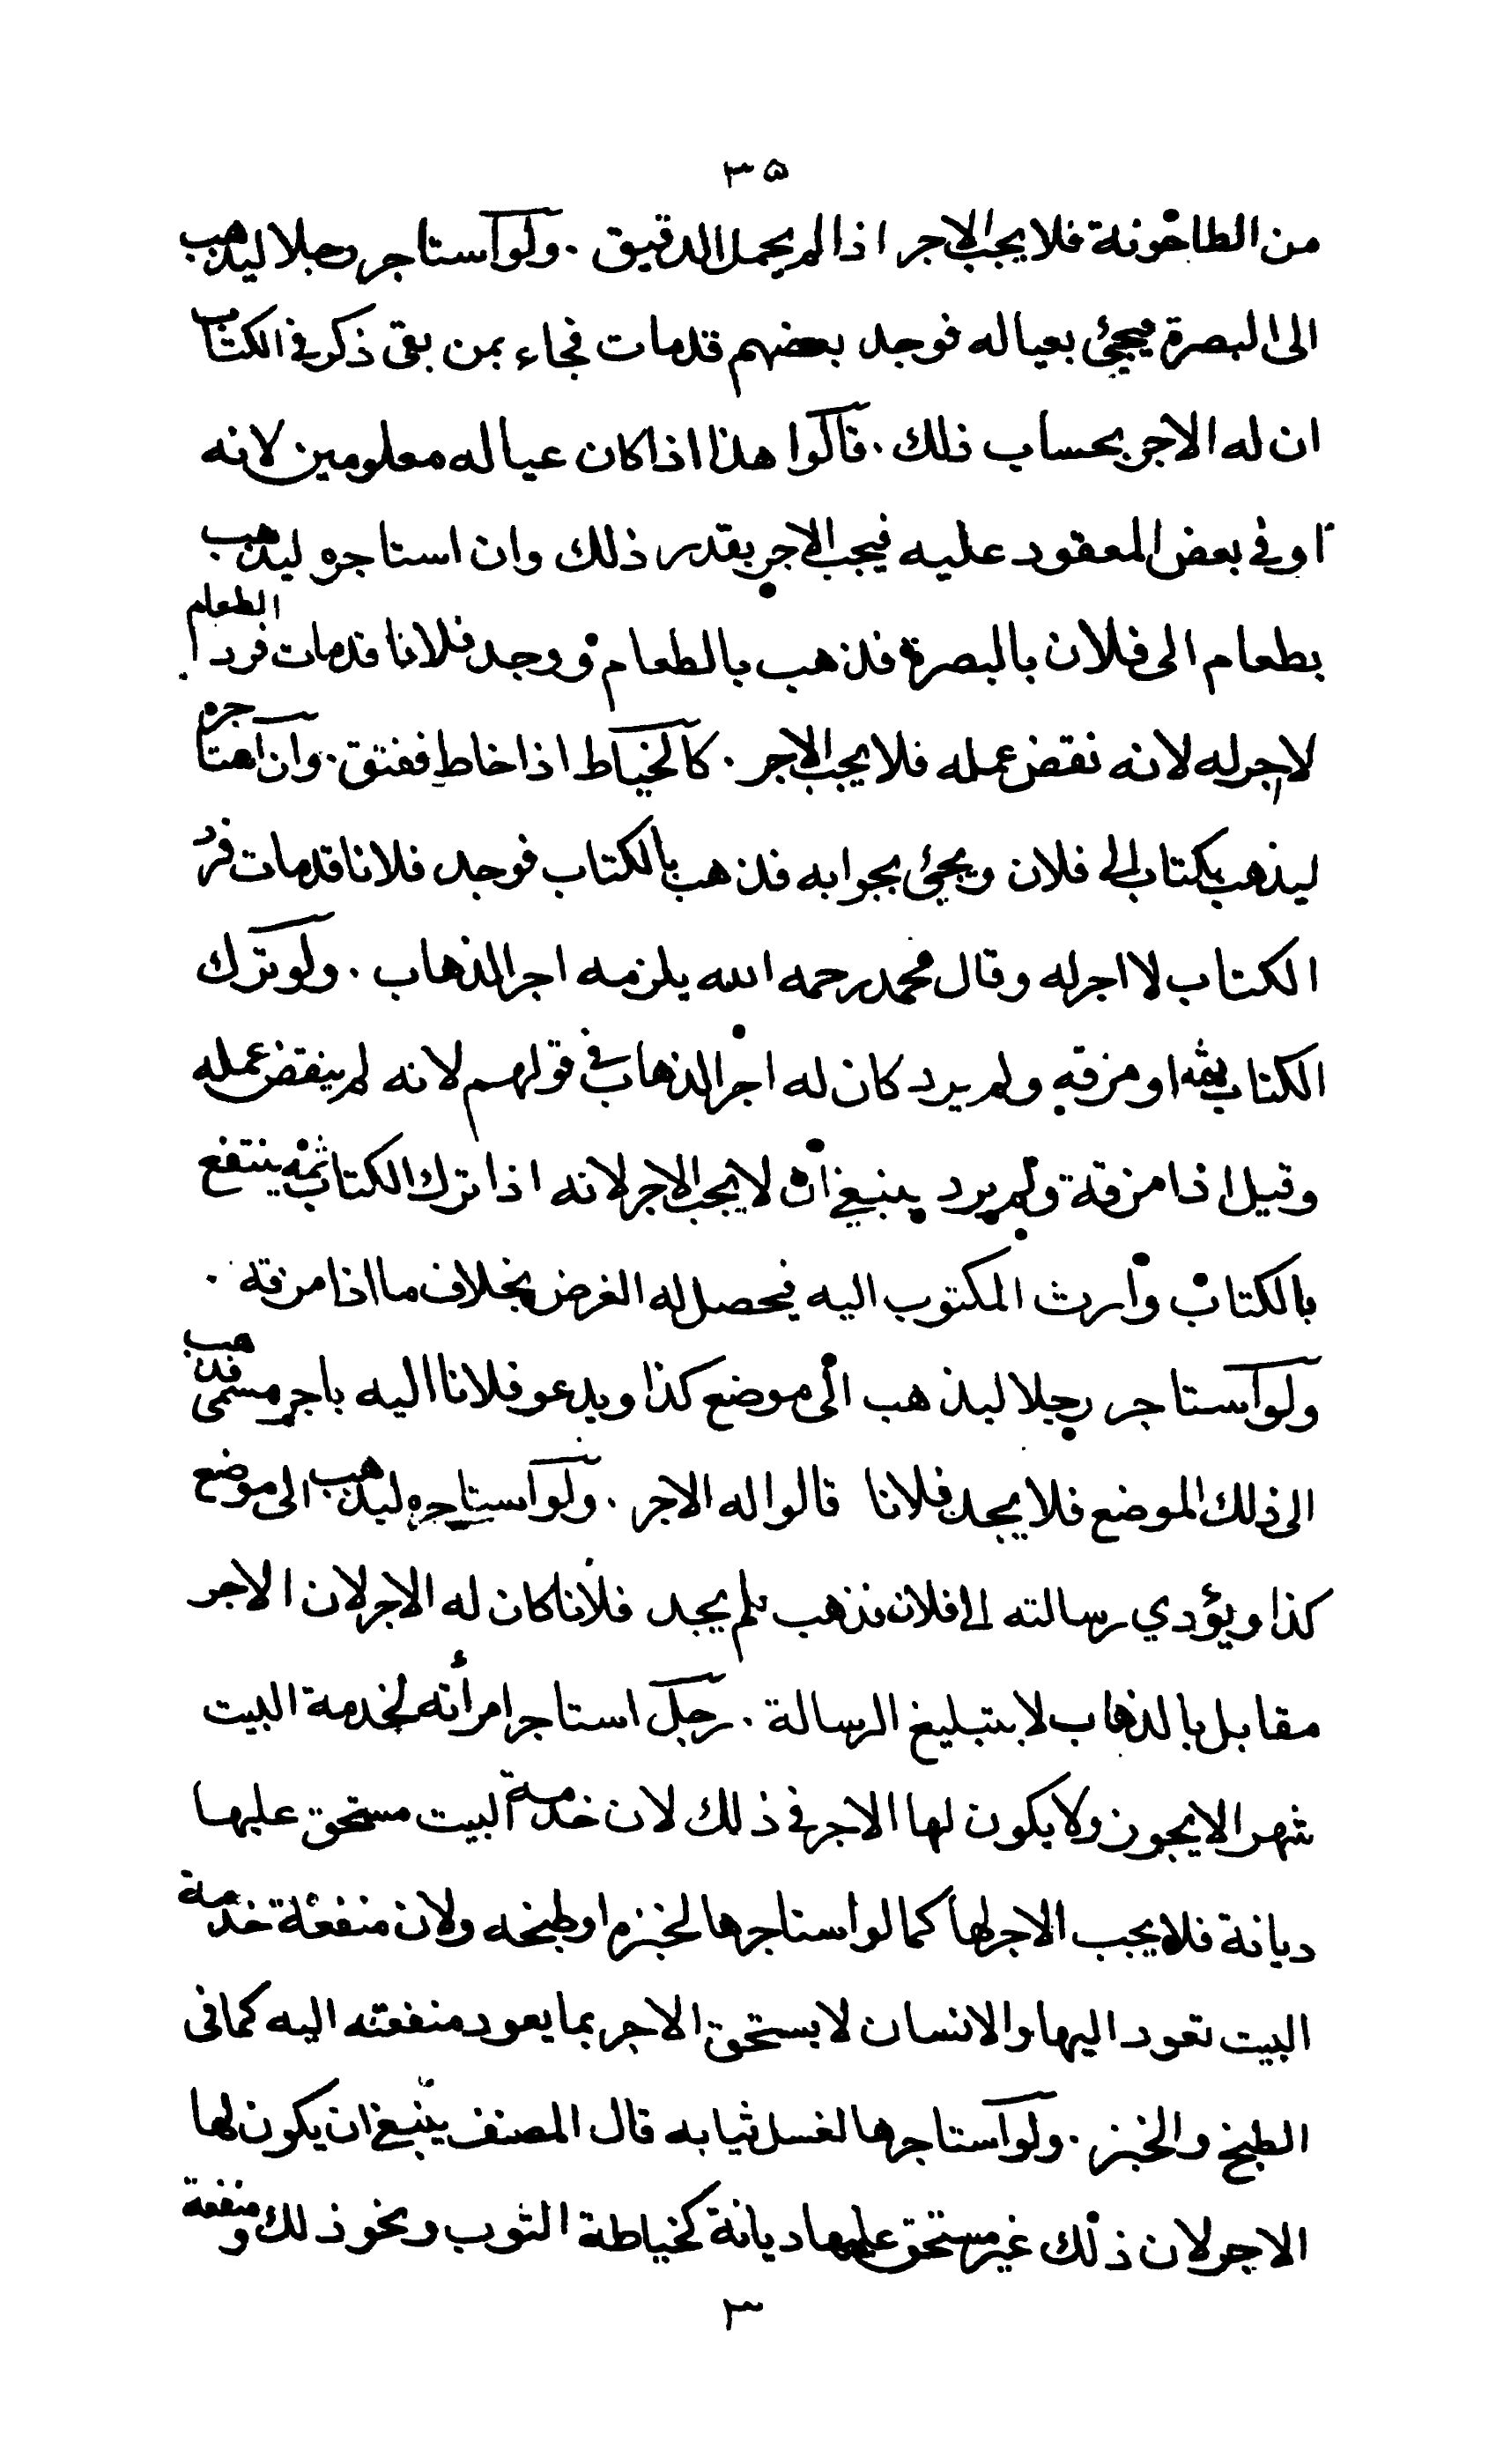 ٣٥
من الطاحونة فلا يجب الاجر اذا لم يحمل الدقيق . ولو استاجر رجلا ليذهب
الى البصرة فيجئ بعياله فوجد بعضهم قد مات فجاء بمن بقى ذكر في الكتاب
ان له الاجر بحساب ذلك . قالوا هذا اذا كان عياله معلومين لانه
اوفى بعض المعقود عليه فيجب الاجر بقدر ذلك وان استاجره ليذهب
بطعام الى فلان بالبصرة فذهب بالطعام فوجد فلانا قد مات فرد الطعام
لا اجر له لانه نقض عمله فلا يجب الاجر . كالخياط اذا خاط ففتق . وان استاجره
ليذهب بكتاب الى فلان ويجئ بجوابه فذهب بالكتاب فوجد فلانا قد مات فرد
الكتاب لا اجر له وقال محمد رحمه الله يلزمه اجر الذهاب . ولو ترك
الكتاب ثمه او مزقه ولم يرد كان له اجر الذهاب في قولهم لانه لم ينقض عمله
وقيل اذا مزقة ولم يرد ينبغي ان لا يجب الاجر لانه اذا ترك الكتاب ثمه ينتفع
بالكتاب وارث المكتوب اليه فيحصل له الغرض بخلاف ما اذا مزقه .
ولو استاجر رجلا ليذهب الى موضع كذا ويدعو فلانا اليه باجر مسمى فذهب
الى ذلك الموضع فلا يجد فلانا قالوا له الاجر . ولو استاجره ليذهب الى موضع
كذا ويؤدي رسالته الى فلان فذهب فلم يجد فلانا كان له الاجر لان الاجر
مقابل بالذهاب لا بتبليغ الرسالة . رجل استاجر امرأته لخدمة البيت
شهرا لا يجوز ولا يكون لها الاجر في ذلك لان خدمة البيت مستحق عليها
ديانة فلا يجب الاجر لها كما لو استاجرها لخبزه او طبخه ولان منفعة خدمة
البيت تعود اليها والانسان لا يستحق الاجر بما يعود منفعته اليه كما فى
الطبخ والخبز . ولو استاجرها لغسل ثيابه قال المصنف ينبغي ان يكون لها
الاجر لان ذلك غير مستحق عليها ديانة كخياطة الثوب ونحو ذلك ومنفعة
٣